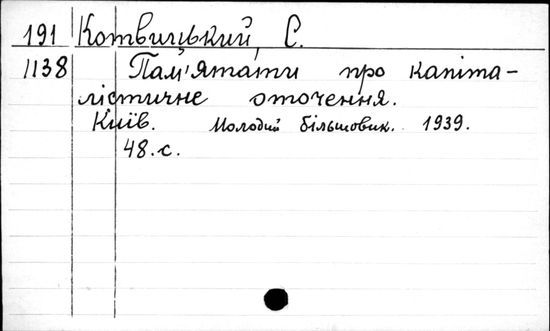 191 Котвицький, С.
1138 Пам'ятати про капіта-
лістичне оточення.
Київ. Молодий більшовик. 1939.
48.с.